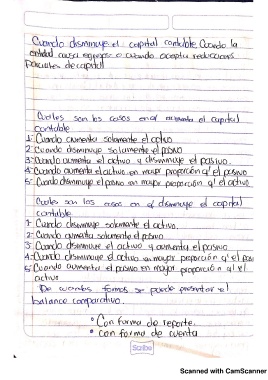 Cuando disminuye el capital contable, Cuando la
entidad causa egresos o cuando acepta reducciones
parciales de capital
Cuales son los casos en q' aumenta el capital
contable
1- Cuando aumenta solamente el activo
2- Cuando disminuye solamente el pasivo
3- Cuando aumenta el activo y disminuye el pasivo.
4- Cuando aumenta el activo en mayor proporción q' el pasivo
5- Cuando disminuye el pasivo en mayor proporción q' el activo
Cuales son los casos en q' disminuye el capital
contable
1- Cuando disminuye solamente el activo.
2- Cuando aumenta solamente el pasivo
3- Cuando disminuye el activo y aumenta el pasivo
4- Cuando disminuye el activo en mayor proporcion q' el pas
5- Cuando aumenta el pasivo en mayor proporción q' el
activo
De cuantas formas se puede presentar el
balance comparativo.
• Con forma de reporte.
• con forma de cuenta
Scribe
Scanned with CamScanner